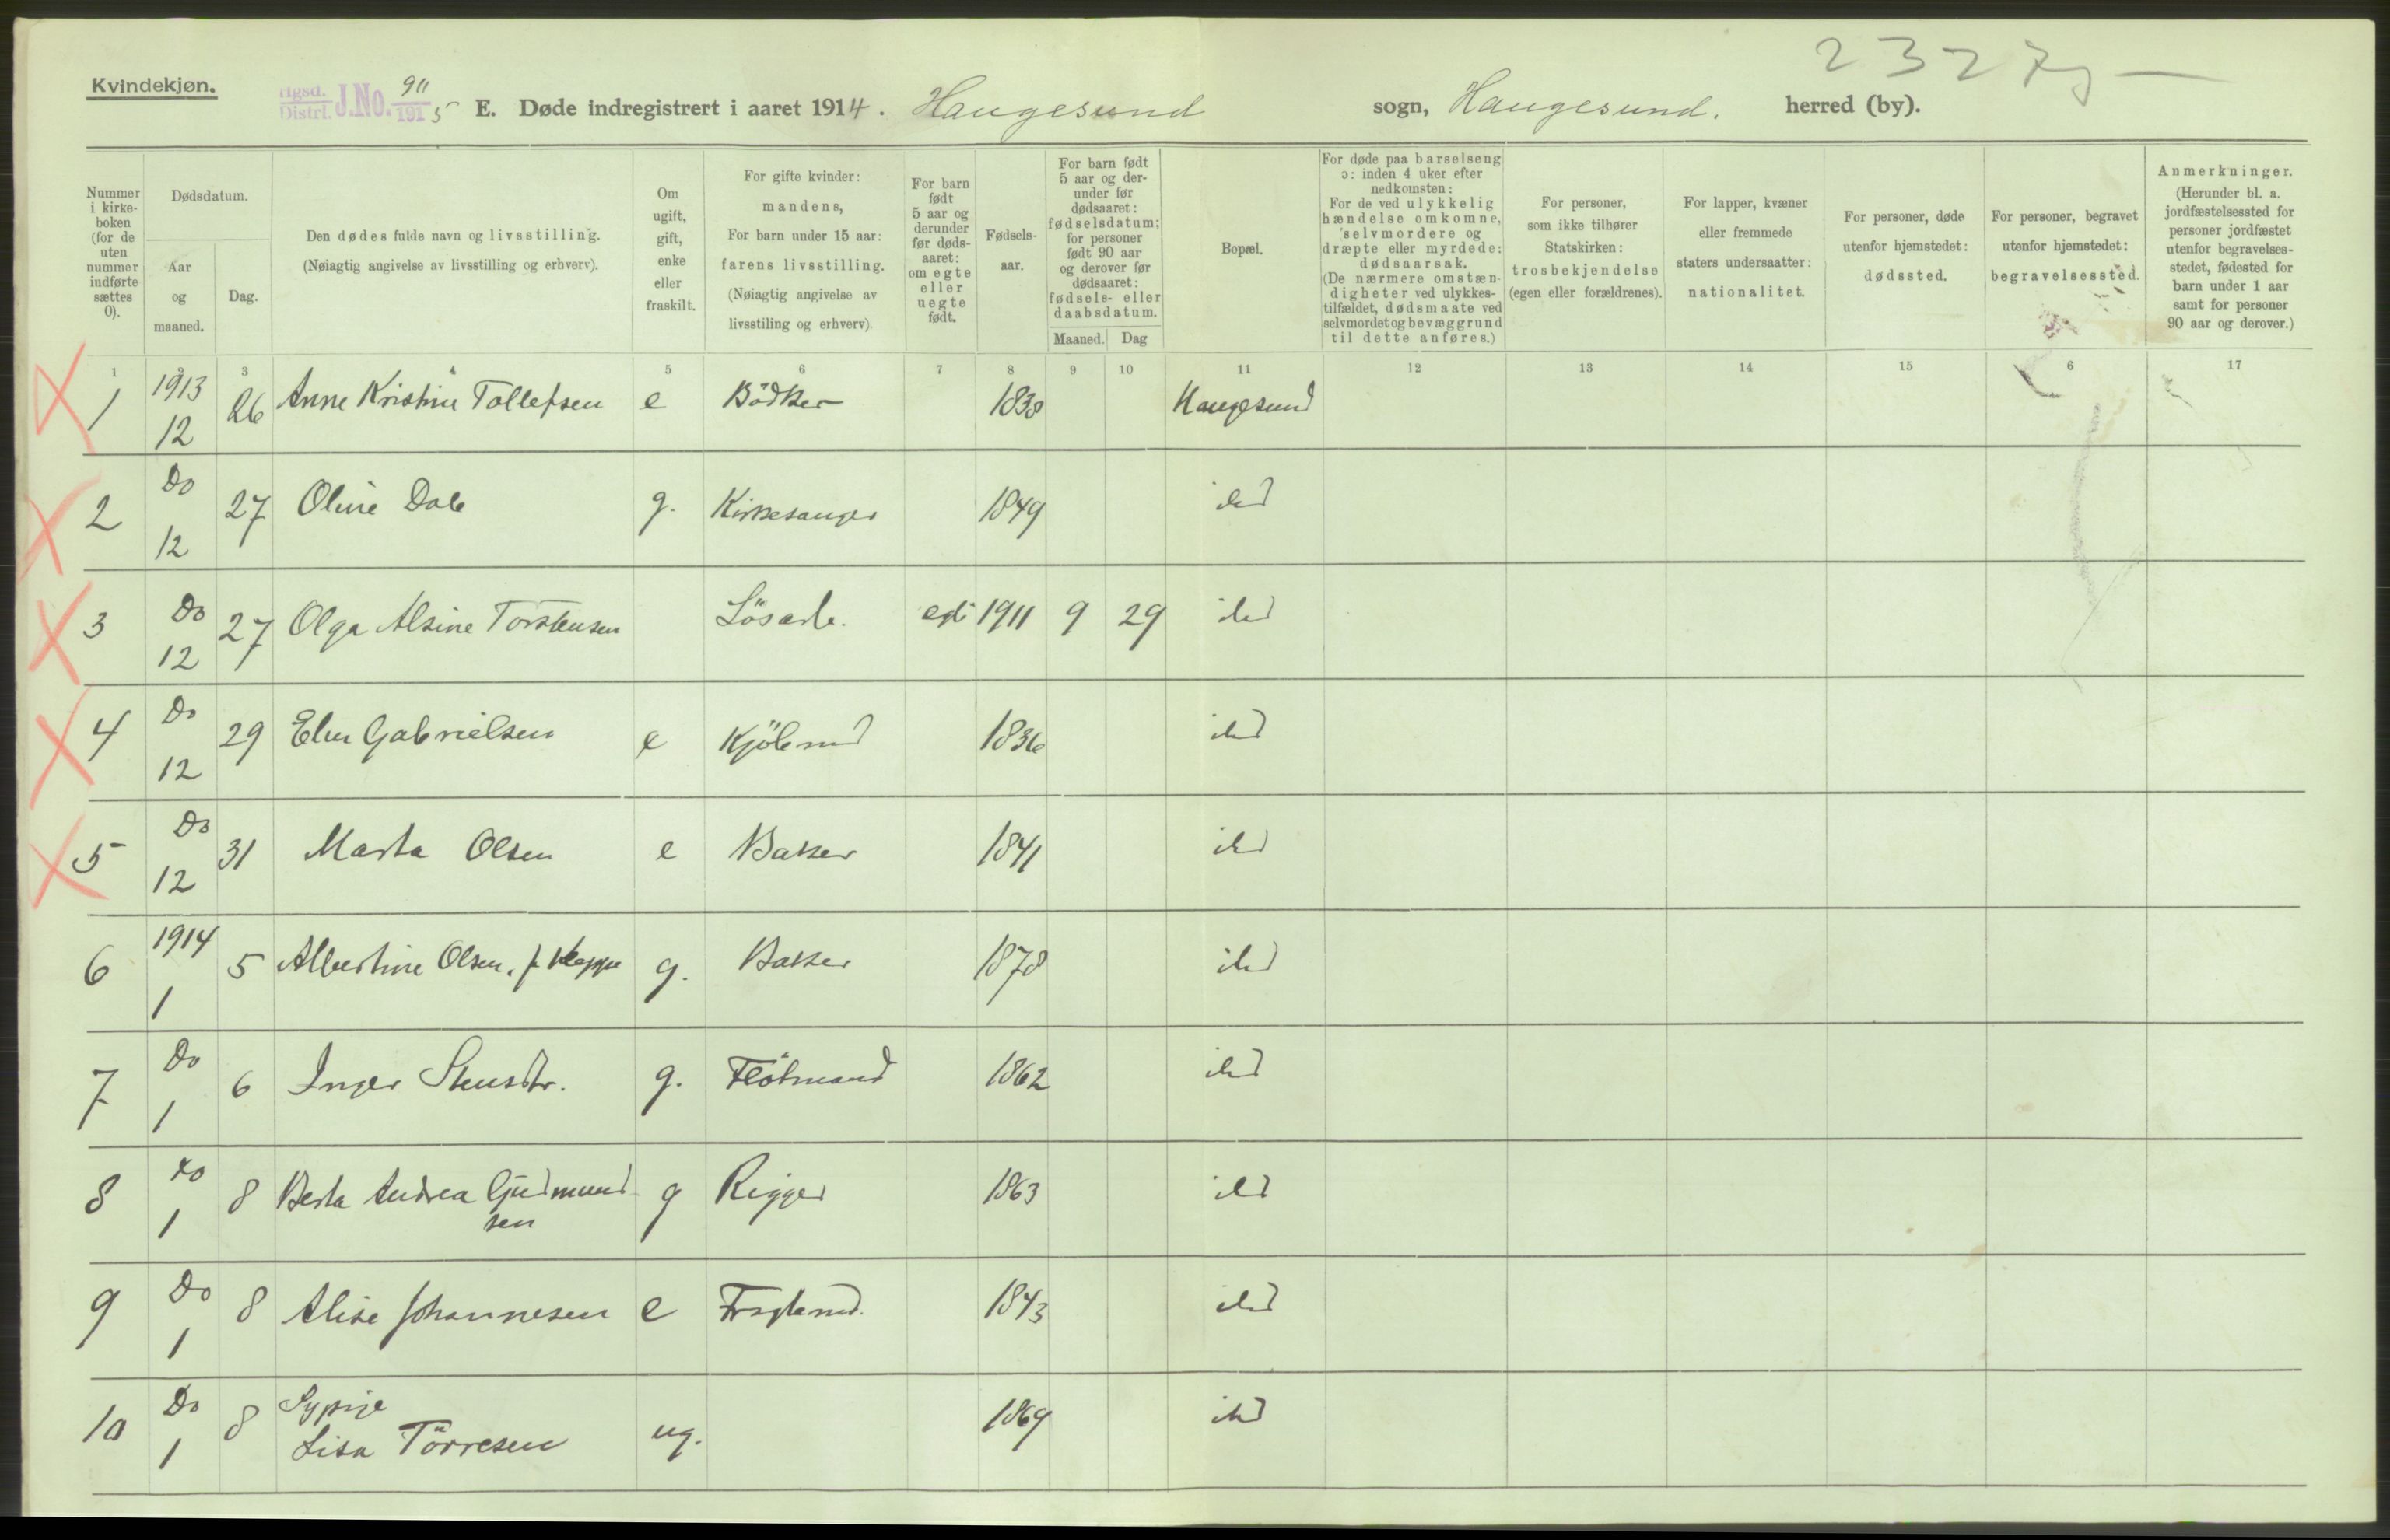 2327
Kvindekjøn.
Hgsd. Distrf. J.No. 911 1915
E. Døde indregistrert i aaret 1914. Haugesund sogn, Haugesund. herred (by).
Nummer i kirkeboken (for de uten nummer indførte sættes 0).
Dødsdatum.
Aar og maaned.
Dag.
Den dødes fulde navn og livsstilling.
(Nøiagtig angivelse av livsstilling og erhverv).
Om ugift, gift, enke eller fraskilt.
For gifte kvinder: mandens,
For barn under 15 aar: farens livsstilling.
(Nøiagtig angivelse av livsstiling og erhverv).
For barn født 5 aar og derunder før dødsaaret: om egte eller uegte født.
Fødselsaar.
For barn født 5 aar og derunder før dødsaaret: fødselsdatum; for personer født 90 aar og derover før dødsaaret: fødsels- eller daabsdatum.
Maaned. Dag
Bopæl.
For døde paa barselseng ɔ: inden 4 uker efter nedkomsten:
For de ved ulykkelig hændelse omkomne, selvmordere og dræpte eller myrdede: dødsaarsak.
(De nærmere omstændigheter ved ulykkestilfældet, dødsmaate ved selvmordet og bevæggrund til dette anføres.)
For personer, som ikke tilhører Statskirken: trosbekjendelse (egen eller forældrenes).
For lapper, kvæner eller fremmede staters undersaatter: nationalitet.
For personer, døde utenfor hjemstedet: dødssted.
For personer, begravet utenfor hjemstedet: begravelsessted.
Anmerkninger.
(Herunder bl. a. jordfæstelsessted for personer jordfæstet utenfor begravelsesstedet, fødested for barn under 1 aar samt for personer 90 aar og derover.)
1 2 3 4 5 6 7 8 9 10 11 12 13 14 15 6 17
1 1913 12 26 Anne Kristine Tollefsen e Bödker 1838 Haugesund
2 Do 12 27 Oline Dale g. Kirkesanger 1849 ibd
3 Do 12 27 Olga Alsine Torstensen Lösarb. egte 1911 9 29 ibd
4 Do 12 29 Elen Gabrielsen e Kjöbmd 1836 ibd
5 Do 12 31 Marta Olsen e Baker 1841 ibd
6 1914 1 5 Albertine Olsen, f. Kleppe g. Baker 1878 ibd
7 Do 1 6 Inger Stensdtr. g. Flötmand 1862 ibd
8 do 1 8 Berta Andrea Gudmundsen g Rigger 1863 ibd
9 Do 1 8 Alise Johannesen e Fragtemd. 1843 ibd
10 Do 1 8 Sypige
Lisa Törresen ug. 1869 ibd